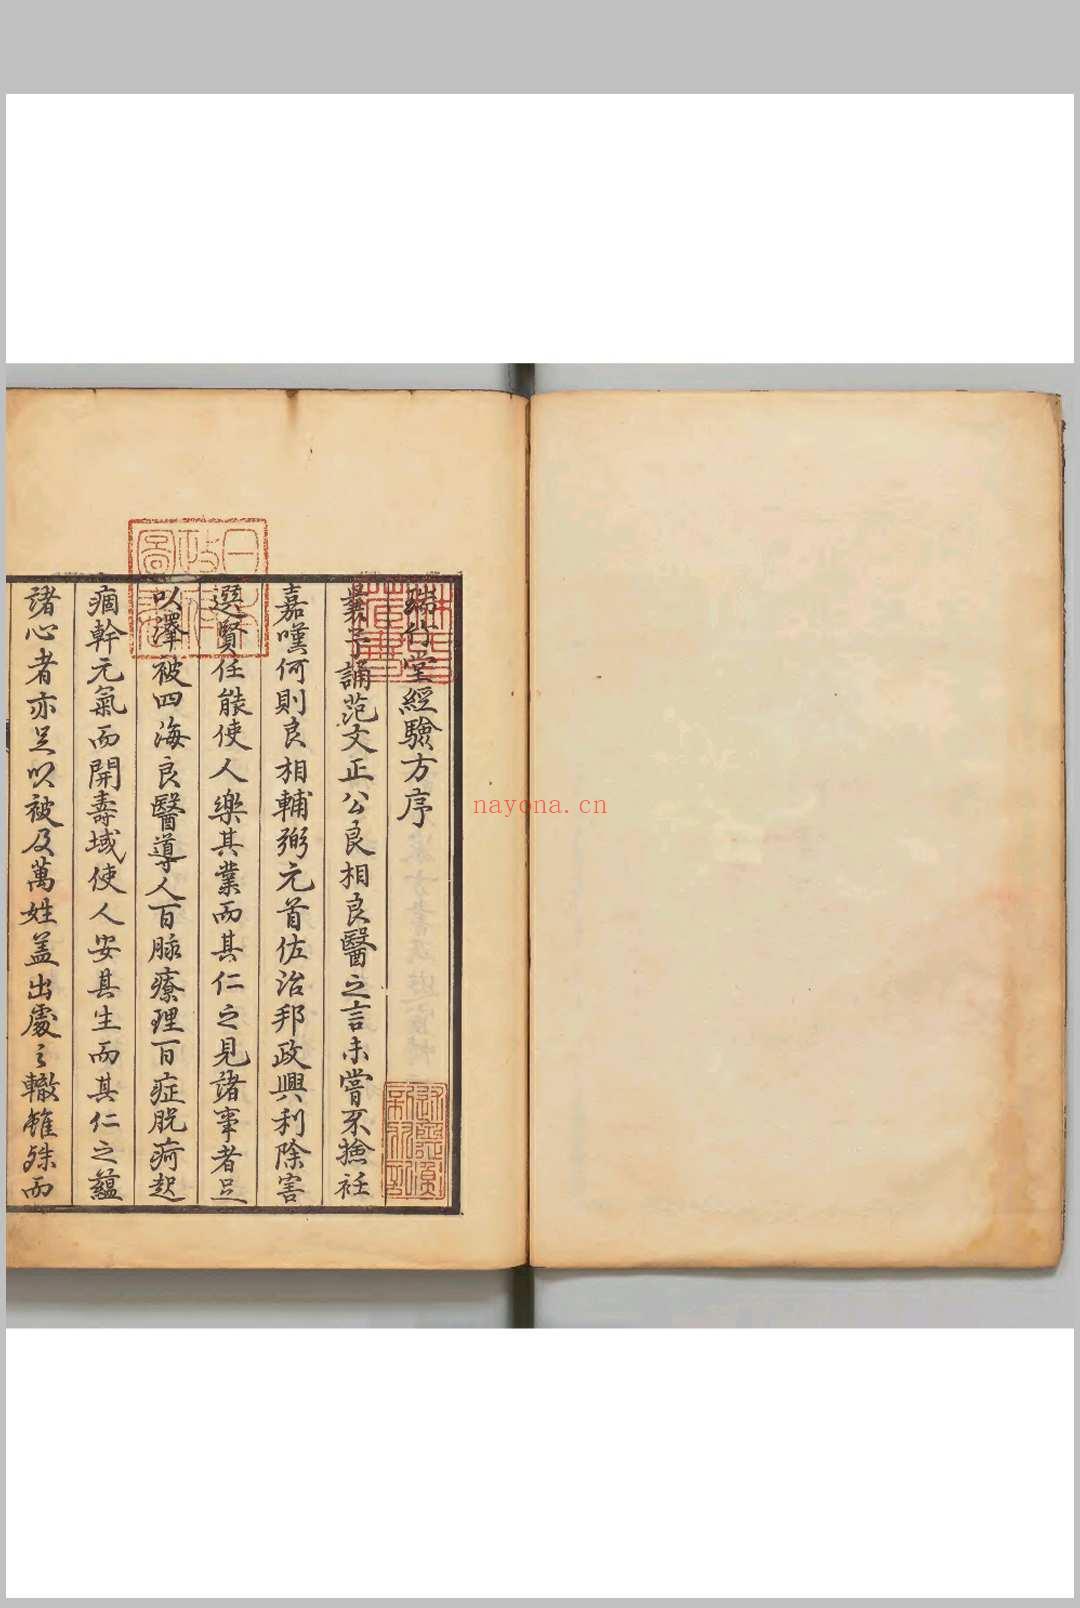 瑞竹堂經驗方序
曩予誦范文正公良相良醫之言未嘗不撿衽
嘉嘆何則良相輔弼元首佐治邦政興利除害
選賢任能使人樂其業而其仁之見諸事者足
以澤被四海良醫導人百脉療理百症脱疴起
痼斡元氣而開壽域使人安其生而其仁之蘊
諸心者亦足以被及萬姓盖出處之轍雖殊而
nayona.cn